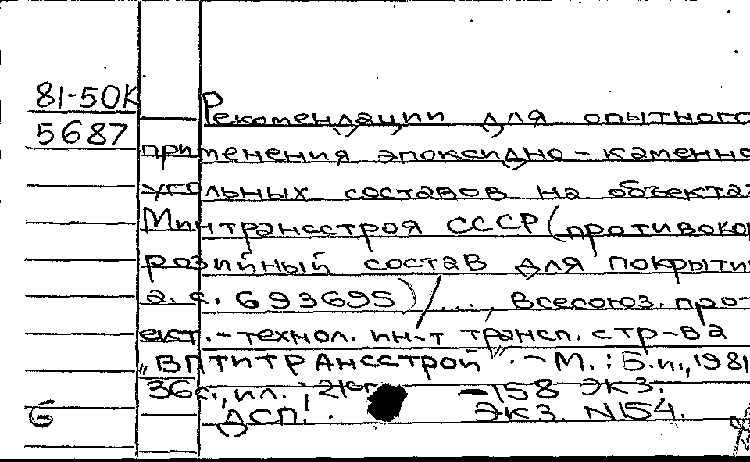 81-50К Рекомендации для опытного
5687 применения эпоксидно-каменно
угольных составов на объектах
Минтрансстроя СССР (противокор
розийный состав для покрытия
а.с. 693695)/..., Всесоюз. про-
ект.-технол. ин-т трансп. стр-ва
"ВПТИТРАНССТРОЙ". - М.: Б.и., 1981
36с., ил.; 21см - 158 экз.
6 ДСП. Экз. N154.